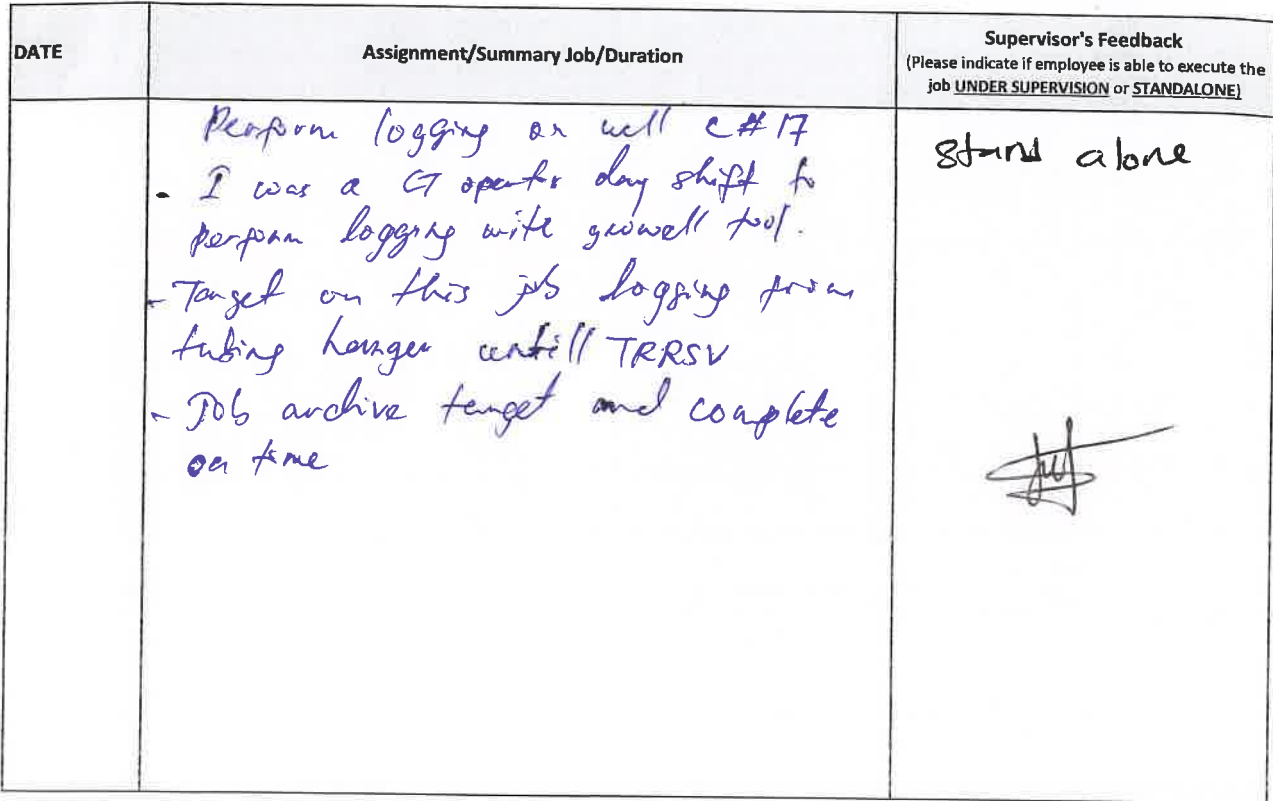 DATE
Assignment/Summary Job/Duration
Supervisor's Feedback
(Please indicate if employee is able to execute the
job UNDER SUPERVISION or STANDALONE)
Perform logging on well C#17
- I was a CT operator day shift to
perform logging with tool.
- Target on this job logging from
tubing hanger untill TRRSV
- Job archive target and complete
on time
Stand alone